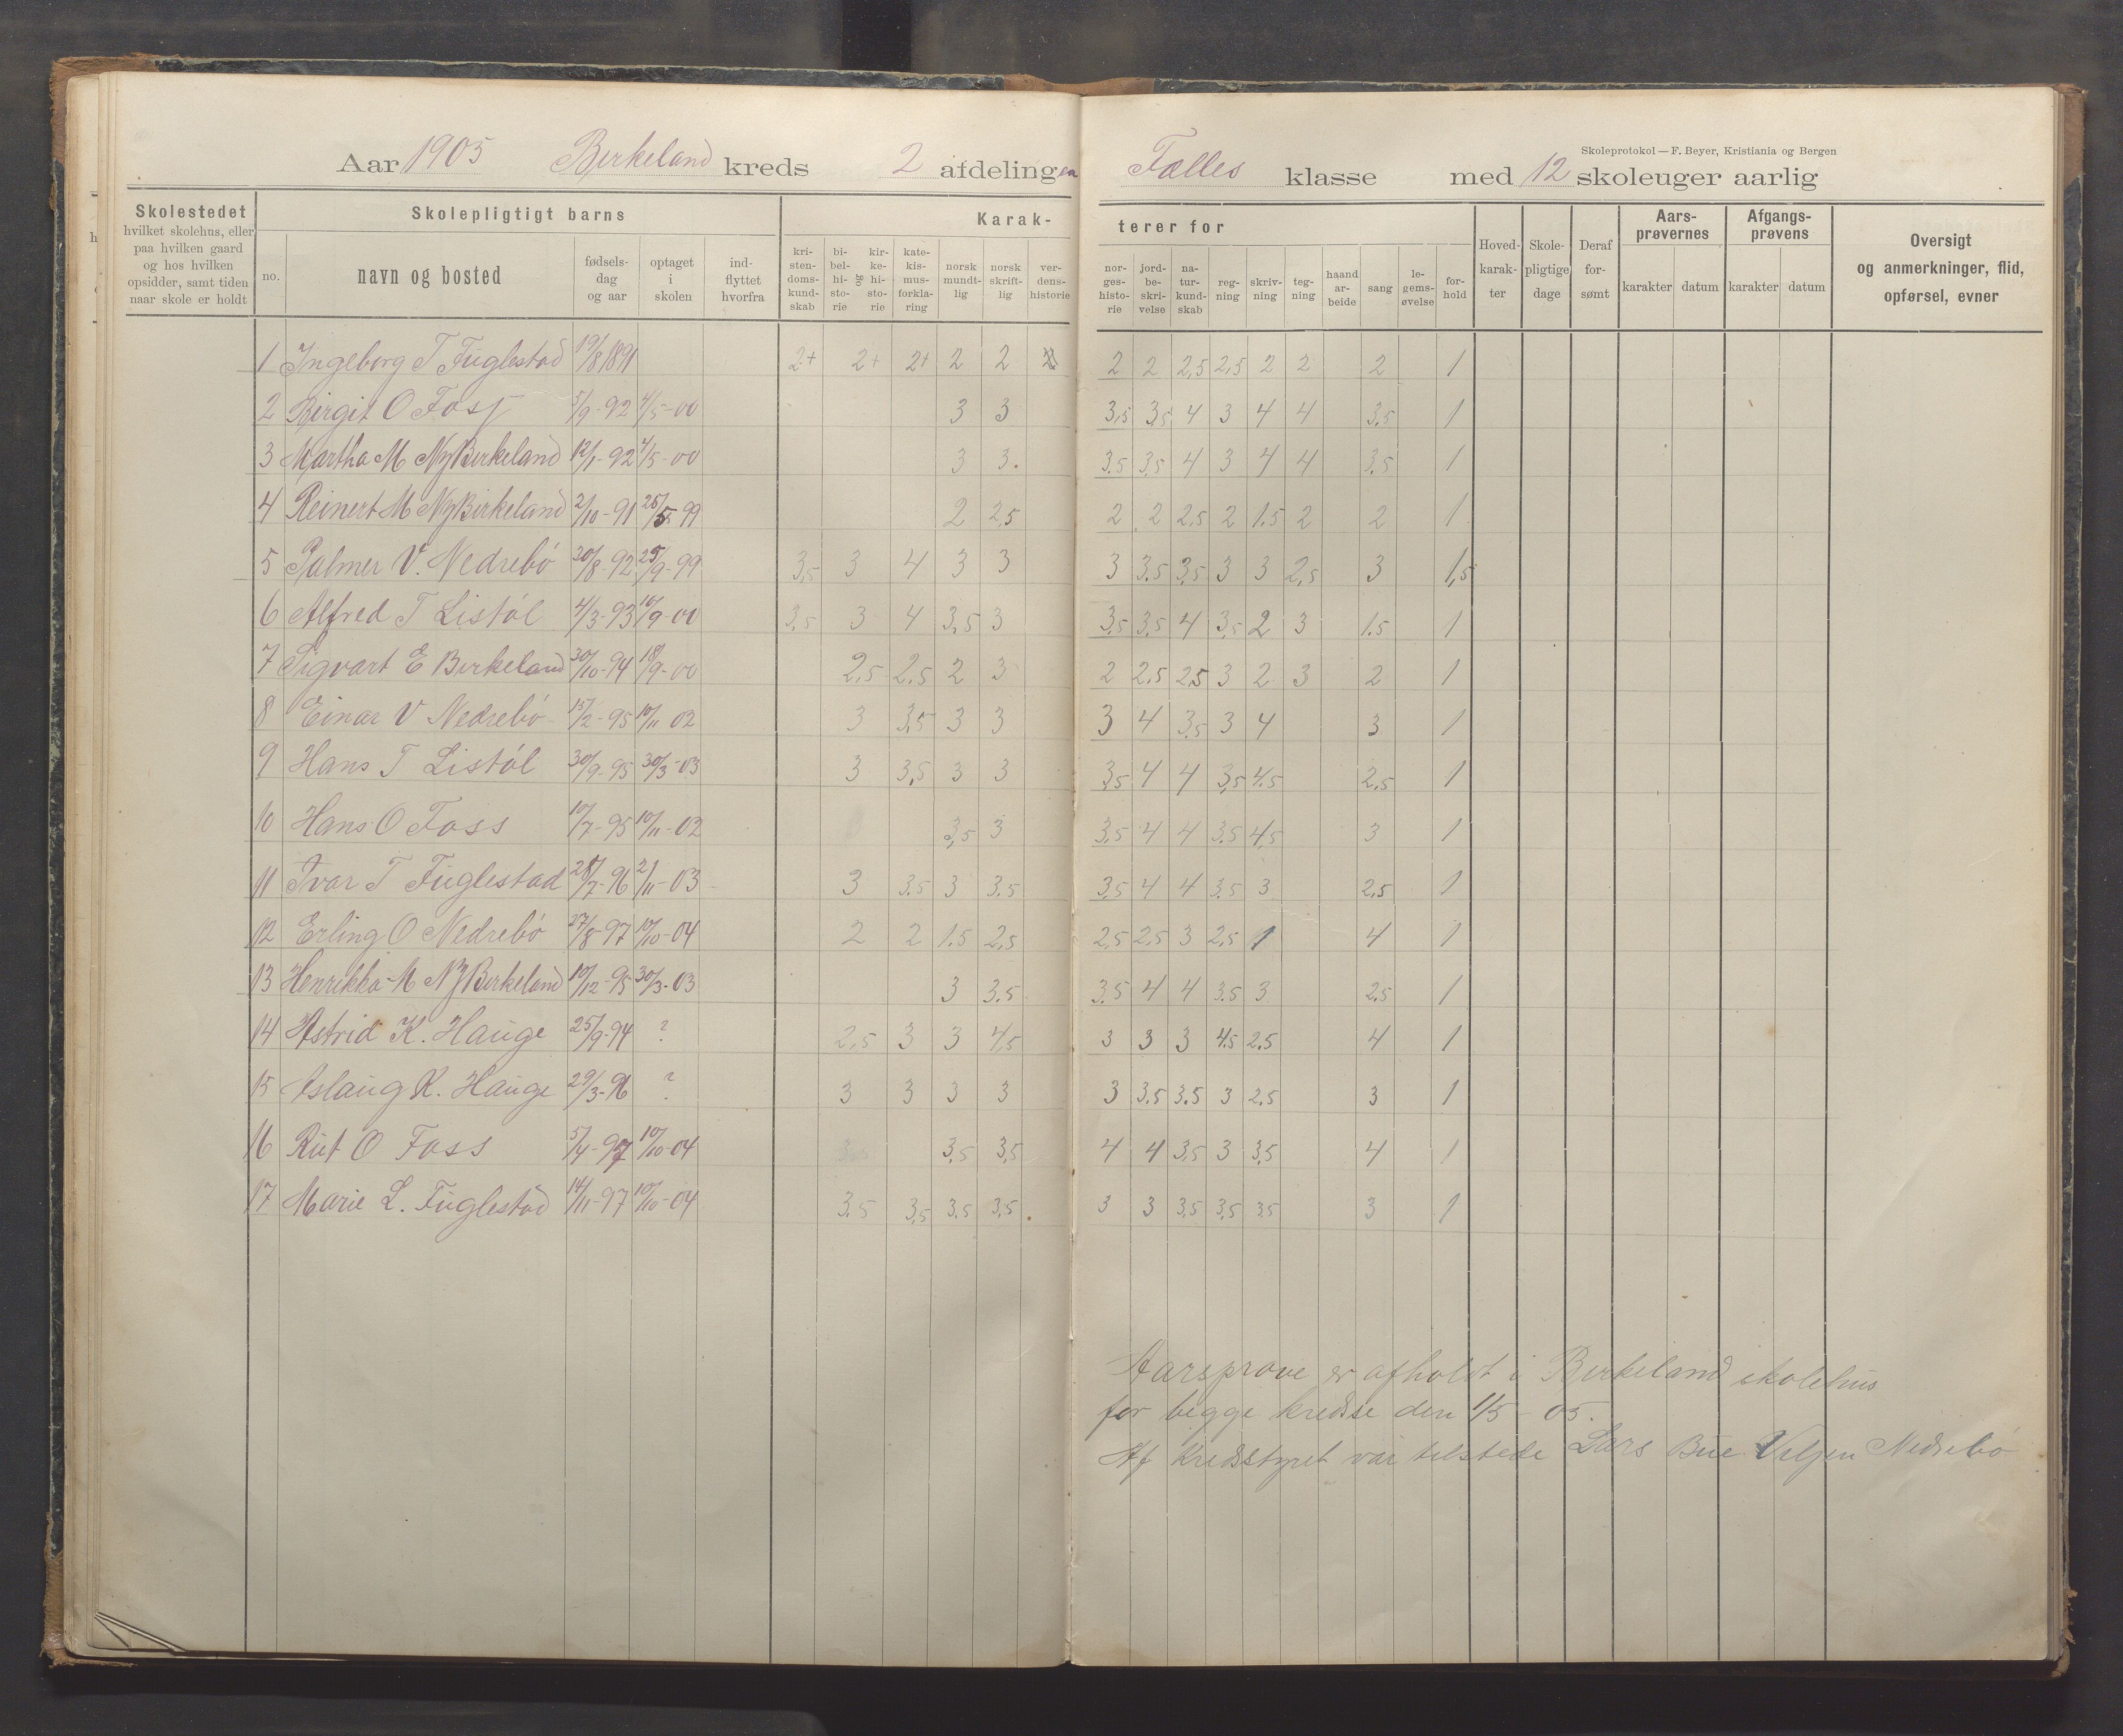 Skoleprotokol — F. Beyer, Kristiania og Bergen
Aar 1905 Birkeland kreds 2 afdelingen Fælles klasse med 12 skoleuger aarlig
Skolestedet
hvilket skolehus, eller
paa hvilken gaard
og hos hvilken
opsidder, samt tiden
naar skole er holdt
Skolepligtigt barns
no.
navn og bosted
fødsels-
dag
og aar
optaget
i
skolen
ind-
flyttet
hvorfra
Karak-
terer for
kri-
sten-
doms-
kund-
skab
bi-
bel-
hi-
sto-
rie
og
kir-
ke-
hi-
sto-
rie
kate-
kis-
mus-
forkla-
ring
norsk
mundt-
lig
norsk
skrift-
lig
ver-
dens-
historie
nor-
ges-
histo-
rie
jord-
be-
skri-
velse
na-
tur-
kund-
skab
reg-
ning
skriv-
ning
teg-
ning
haand
ar-
beide
sang
le-
gems-
øvelse
for-
hold
Hoved-
karak-
ter
Skole-
pligtige
dage
Deraf
for-
sømt
Aars-
prøvernes
karakter datum
Afgangs-
prøvens
karakter datum
Oversigt
og anmerkninger, flid,
opførsel, evner
1 Ingeborg T Fuglestad 19/8 1891 2+ 2+ 2+ 2 2 2 2 2,5 2,5 2 2 2 1
2 Birgit O Foss 5/9-92 4/5-00 3 3 3,5 3,5 4 3 4 4 3,5 1
3 Martha M Ny Birkeland 12/1-92 4/5-00 3 3. 3.5 3,5 4 3 4 4 3,5 1
4 Reinert M Ny Birkeland 2/10-91 25/5 99 2 2,5 2 2 2,5 2 1.5 2 2 1
5 Palmer V. Nedrebó 30/8-92 25/9-99 3,5 3 4 3 3 3 3.5 3,5 3 3 2,5 3 1,5
6 Alfred T Listól 4/3-93 10/9-00 3,5 3 4 3,5 3 3,5 3,5 4 3,5 2 3 1.5 1
7 Sigvart E Birkeland 30/10-94 18/9-00 2,5 2,5 2 3 2 2,5 2,5 3 2 3 2 1
8 Einar V Nedrebó 15/2-95 10/11 02 3 3,5 3 3 3 4 3,5 3 4 3 1
9 Hans T Listól 30/9-95 30/3-03 3 3,5 3 3 3,5 4 4 3,5 4.5 2,5 1
10 Hans O Foss 10/7-95 10/11-02 3,5 3 3,5 4 4 3.5 4,5 3 1
11 Ivar T Fuglestad 28/7-96 2/11-03 3 3.5 3 3.5 3,5 4 4 3.5 3 2,5 1
12 Erling O Nedrebó 27/8-97 10/10-04 2 2 1.5 2,5 2,5 2,5 3 2,5 1 4 1
13 Henrikka M Ny Birkeland 10/12-95 30/3-03 3 3.5 3.5 4 4 3.5 3 2,5 1
14 Astrid K. Hauge 25/9-94 ? 2,5 3 3 4,5 3 3 3 4.5 2.5 4 1
15 Aslaug K. Hauge 29/3-96 ? 3 3 3 3 3 3.5 3.5 3 2.5 3 1
16 Rut O Foss 5/4-97 10/10-04 3,5 3,5 4 4 3,5 3 3,5 4 1
17 Marie L. Fuglestad 14/11-97 10/10-04 3.5 3,5 3,5 3,5 3 3 3,5 3,5 3,5 3 1
Aarsprøve er afholdt i Birkeland skolehus
for begge kredse den 1/5 - 05.
Af Kredsstyret var tilstede Lars Bue Veljen Nedrebó